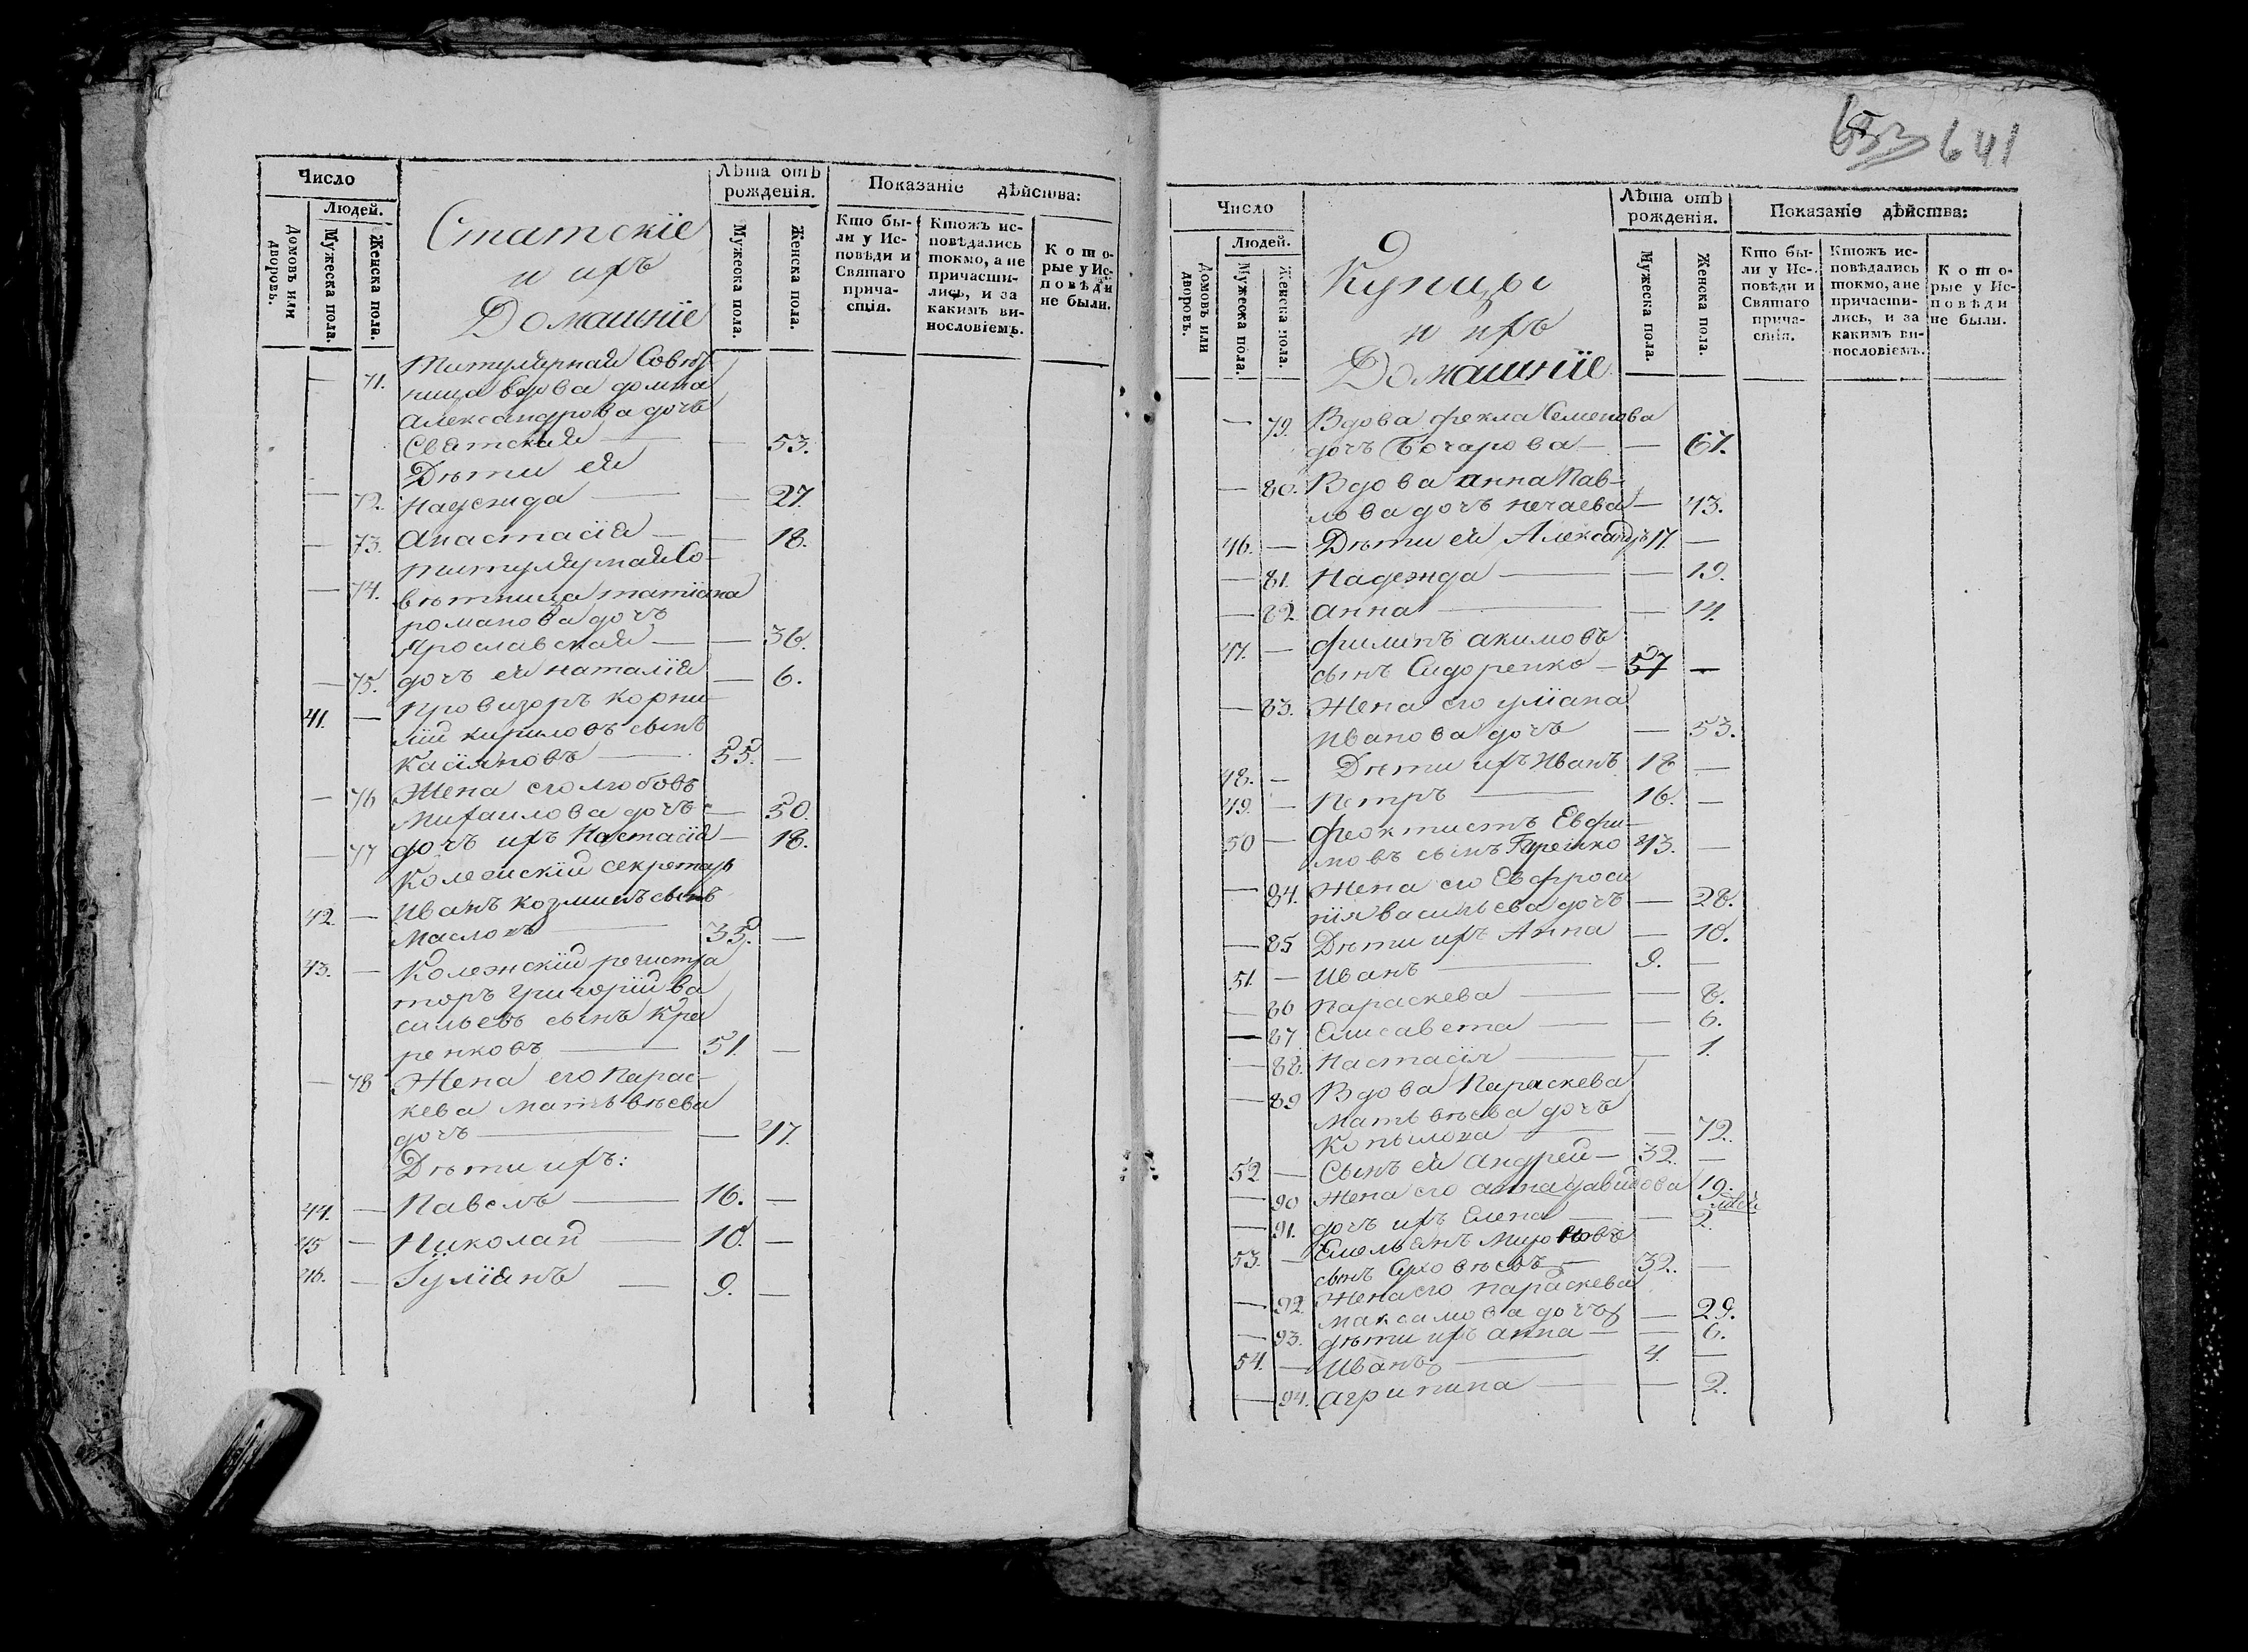 Число
Людей.
Домовъ или дворовъ.
Мужеска пола.
Женска пола.
Статскіе
и ихъ
Домашніе
Лѣта отъ
рожденія.
Мужеска пола.
Женска пола.
Показаніе дѣйства:
Кто бы-
ли у Ис-
повѣди и
Святаго
прича-
стія.
Ктожъ ис-
повѣдались
токмо, а не
причасти-
лись, и за
какимъ ви-
нословіемъ.
Кото-
рые у Ис-
повѣди
не были.
— 71. Титулярная Совѣт
ница вдова домна
Александрова дочь
Святская — — 53.
Дѣти ея
— 72. Надежда — — 27.
— 73. Анастасія — — 18.
Титулярная Со-
— 74. вѣтница татіана
романова дочь
Ярославская — — 36.
— 75. дочь ея наталія — 6.
41. — Провизоръ корни-
лій кириловъ сынъ
Касіяновъ — 55. —
— 76 Жена его любовь
Михаилова дочь — 50.
— 77 дочь ихъ Настасія — 18.
Колежскій секретарь
42. — Иванъ козминъ сынъ
Масловъ — 35. —
43. — Колежскій регистра
торъ григорій ва
сильевъ сынъ Кра
ренковъ — 51. —
— 78 Жена его Парас-
кева матвѣева
дочь — — 47.
Дѣти ихъ:
44. — Павелъ — 16. —
45 — Николай — 10. —
46. — Іуліянъ — 9. —
653 641
Число
Людей.
Домовъ или дворовъ.
Мужеска пола.
Женска пола.
Купцы
и ихъ
Домашніе
Лѣта отъ
рожденія.
Мужеска пола.
Женска пола.
Показаніе дѣйства:
Кто бы-
ли у Ис-
повѣди и
Святаго
прича-
стія.
Ктожъ ис-
повѣдались
токмо, а не
причасти-
лись, и за
какимъ ви-
нословіемъ.
Кото-
рые у Ис-
повѣди
не были.
— 79. Вдова фекла Семенова
дочь Бочарова — — 67.
— 80. Вдова анна Пав-
лова дочь нечаева — 43.
46. — Дѣти ея Александръ 17. —
— 81. Надежда — — 19.
— 82 анна — — 14.
47. — филипъ акимовъ
сынъ Сидоренко — 57 —
— 83. Жена его уліана
Иванова дочь — 53.
48. — Дѣти ихъ Иванъ 18 —
49. — Петръ — 16. —
50 — феоктистъ Евфи-
мовъ сынъ 43. —
— 84. Жена его Евфроси
нія васильева дочь — 28.
— 85 Дѣти ихъ Анна — 10.
51. — Иванъ — 9. —
— 86 Параскева — — 8.
— 87 Елисавета — — 6.
— 88. Настасія — — 1.
— 89 Вдова Параскева
Матвѣева дочь
Копылова — — 72.
52 — Сынъ ея андрей — 32. —
— 90 Жена его анна давидова 19.
— 91. дочь ихъ Елена — — 2.
53. — Емельянъ Мироновъ
сынъ — 32. —
— 92. Жена его параскева
максимова дочь — 29.
— 93. дѣти ихъ анна — — 6.
54. — Иванъ — 4. —
— 94. агрипина — — 2.